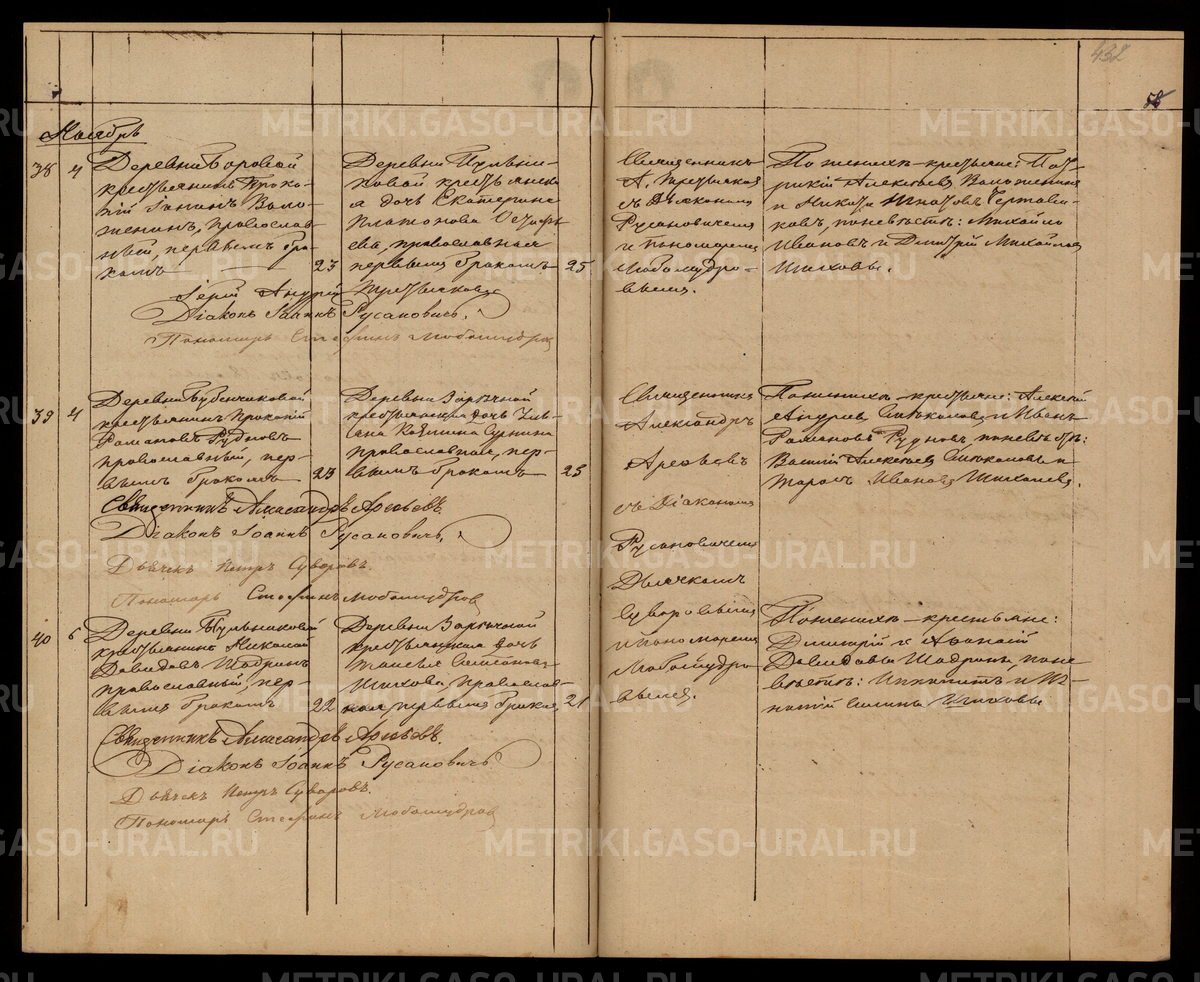 432
58
Ноябрь
38 4
Деревни Боровой
крестьянинъ Проко-
пій Ванинъ Воло-
женинъ, православ-
ный, первымъ бра-
комъ 23
Деревни
ковой крестьянска-
я дочь Екатерина
Платонова
ева, православная
первымъ бракомъ 25
Священникъ
А. Третьяковъ
съ Діакономъ
Русановичемъ
и пономаремъ
Любомудро-
вымъ.
По женихѣ крестьяне:
Алексѣевъ Воложенинъ
и Никита
ковъ, по невѣстѣ: Михайло
Ивановъ и Дмитрій Михайловъ
Шиховы.
Іерей Андрей Третьяковъ
Діаконъ Іоаннъ Русановичъ.
Пономарь Стефанъ Любомудровъ
39 4
Деревни Бубенчиковой
крестьянинъ Прокопій
Романовъ Рудновъ
православный, пер-
вымъ бракомъ 23
Деревни Зарѣчной
крестьянская дочь Уль-
яна Козмина Сурнина
православная, пер-
вымъ бракомъ 23
Священникъ
Александръ
Арефьевъ
съ Діакономъ
Русановичемъ
Дьячкомъ
Суворовымъ
и пономаремъ
Любомудро-
вымъ.
По женихѣ крестьяне: Алексѣй
и Иванъ
Романовъ Рудновъ, по невѣстѣ:
Василій Алексѣевъ и
Ивановъ
Священникъ Александръ Арефьевъ
Діаконъ Іоаннъ Русановичъ.
Дьячекъ Петръ Суворовъ.
Пономарь Стефанъ Любомудровъ
40 6
Деревни
крестьянинъ Николай
Давидовъ Шадринъ
православный, пер-
вымъ бракомъ 22
Деревни Зарѣчной
крестьянская дочь
Таисья
Шихова, православ-
ная, первымъ бракомъ 21
По женихѣ крестьяне:
Димитрій и Аѳанасій
Давидовы Шадрины, по не-
вѣстѣ: Ипполитъ и Иг-
натій Шиховы
Священникъ Александръ Арефьевъ.
Діаконъ Іоаннъ Русановичъ
Дьячекъ Петръ Суворовъ.
Пономарь Стефанъ Любомудровъ
METRIKI.GASO-URAL.RU